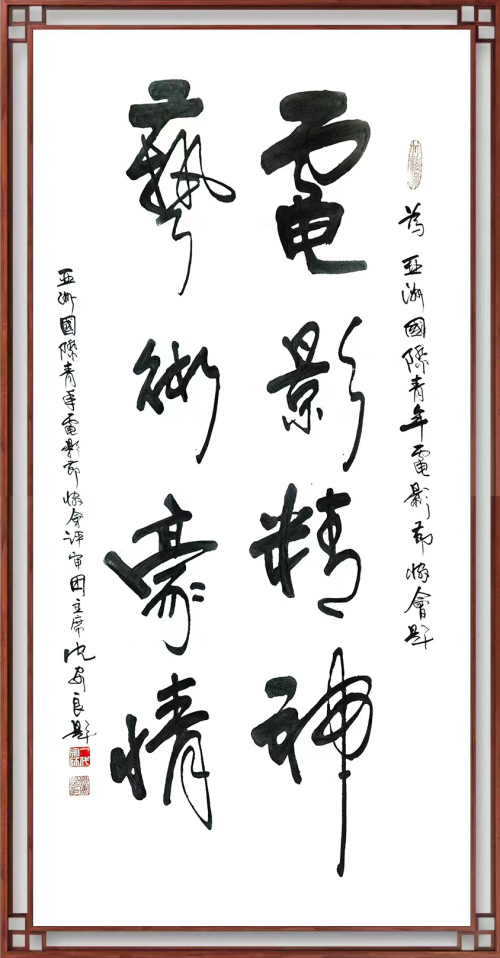 為亞洲國際青年電影節協會題
電影精神
藝術豪情
亞洲國際青年電影節協會评审团主席沈安良題